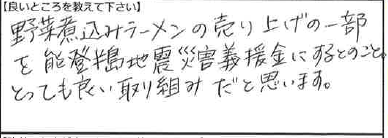 【良いところを教えて下さい】
野菜煮込みラーメンの売り上げの一部
を能登半島地震災害義援金にするとのこと。
とっても良い取り組みだと思います。